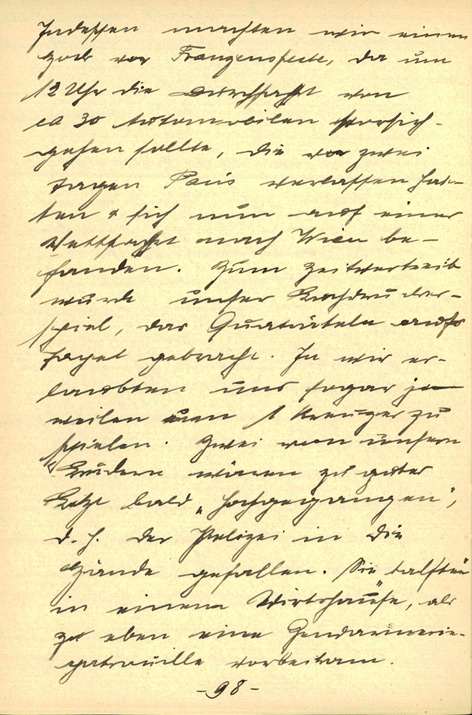 Indessen machten wir einen
vor Franzensfeste, da um
12 Uhr die Durchfahrt von
ca 30 Automobilen vor sich-
gehen sollte, die vor zwei
Tagen Paris verlassen hat-
ten & sich nun auf einer
Wettfahrt nach Wien be-
fanden. Zum Zeitvertreib
wurde unser
spiel, das aufs
Tapet gebracht. Ja wir er-
laubten uns sogar je-
weilen um 1 Kreuzer zu
spielen. Zwei von unsern
Brüdern wären zu guter
Letzt bald „hochgegangen",
d. h. der Polizei in die
Hände gefallen. Sie
in einem Wirtshause, als
eben eine Gendarmerie-
patrouille vorbeikam.
-98-